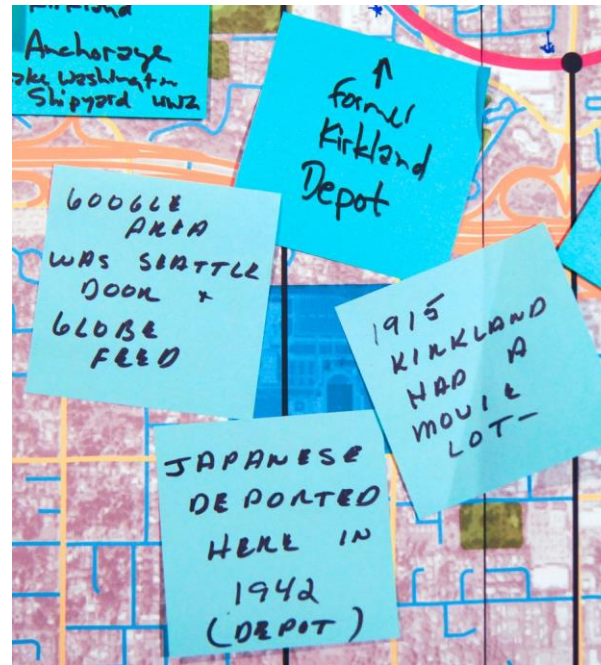 Kirkland
Anchorage
Lake Washington
Shipyard WW2
↑
Former
Kirkland
Depot
GOOGLE
AREA
WAS SEATTLE
DOOR +
GLOBE
FEED
1915
KIRKLAND
HAD A
MOVIE
LOT-
JAPANESE
DEPORTED
HERE IN
1942
(DEPOT)